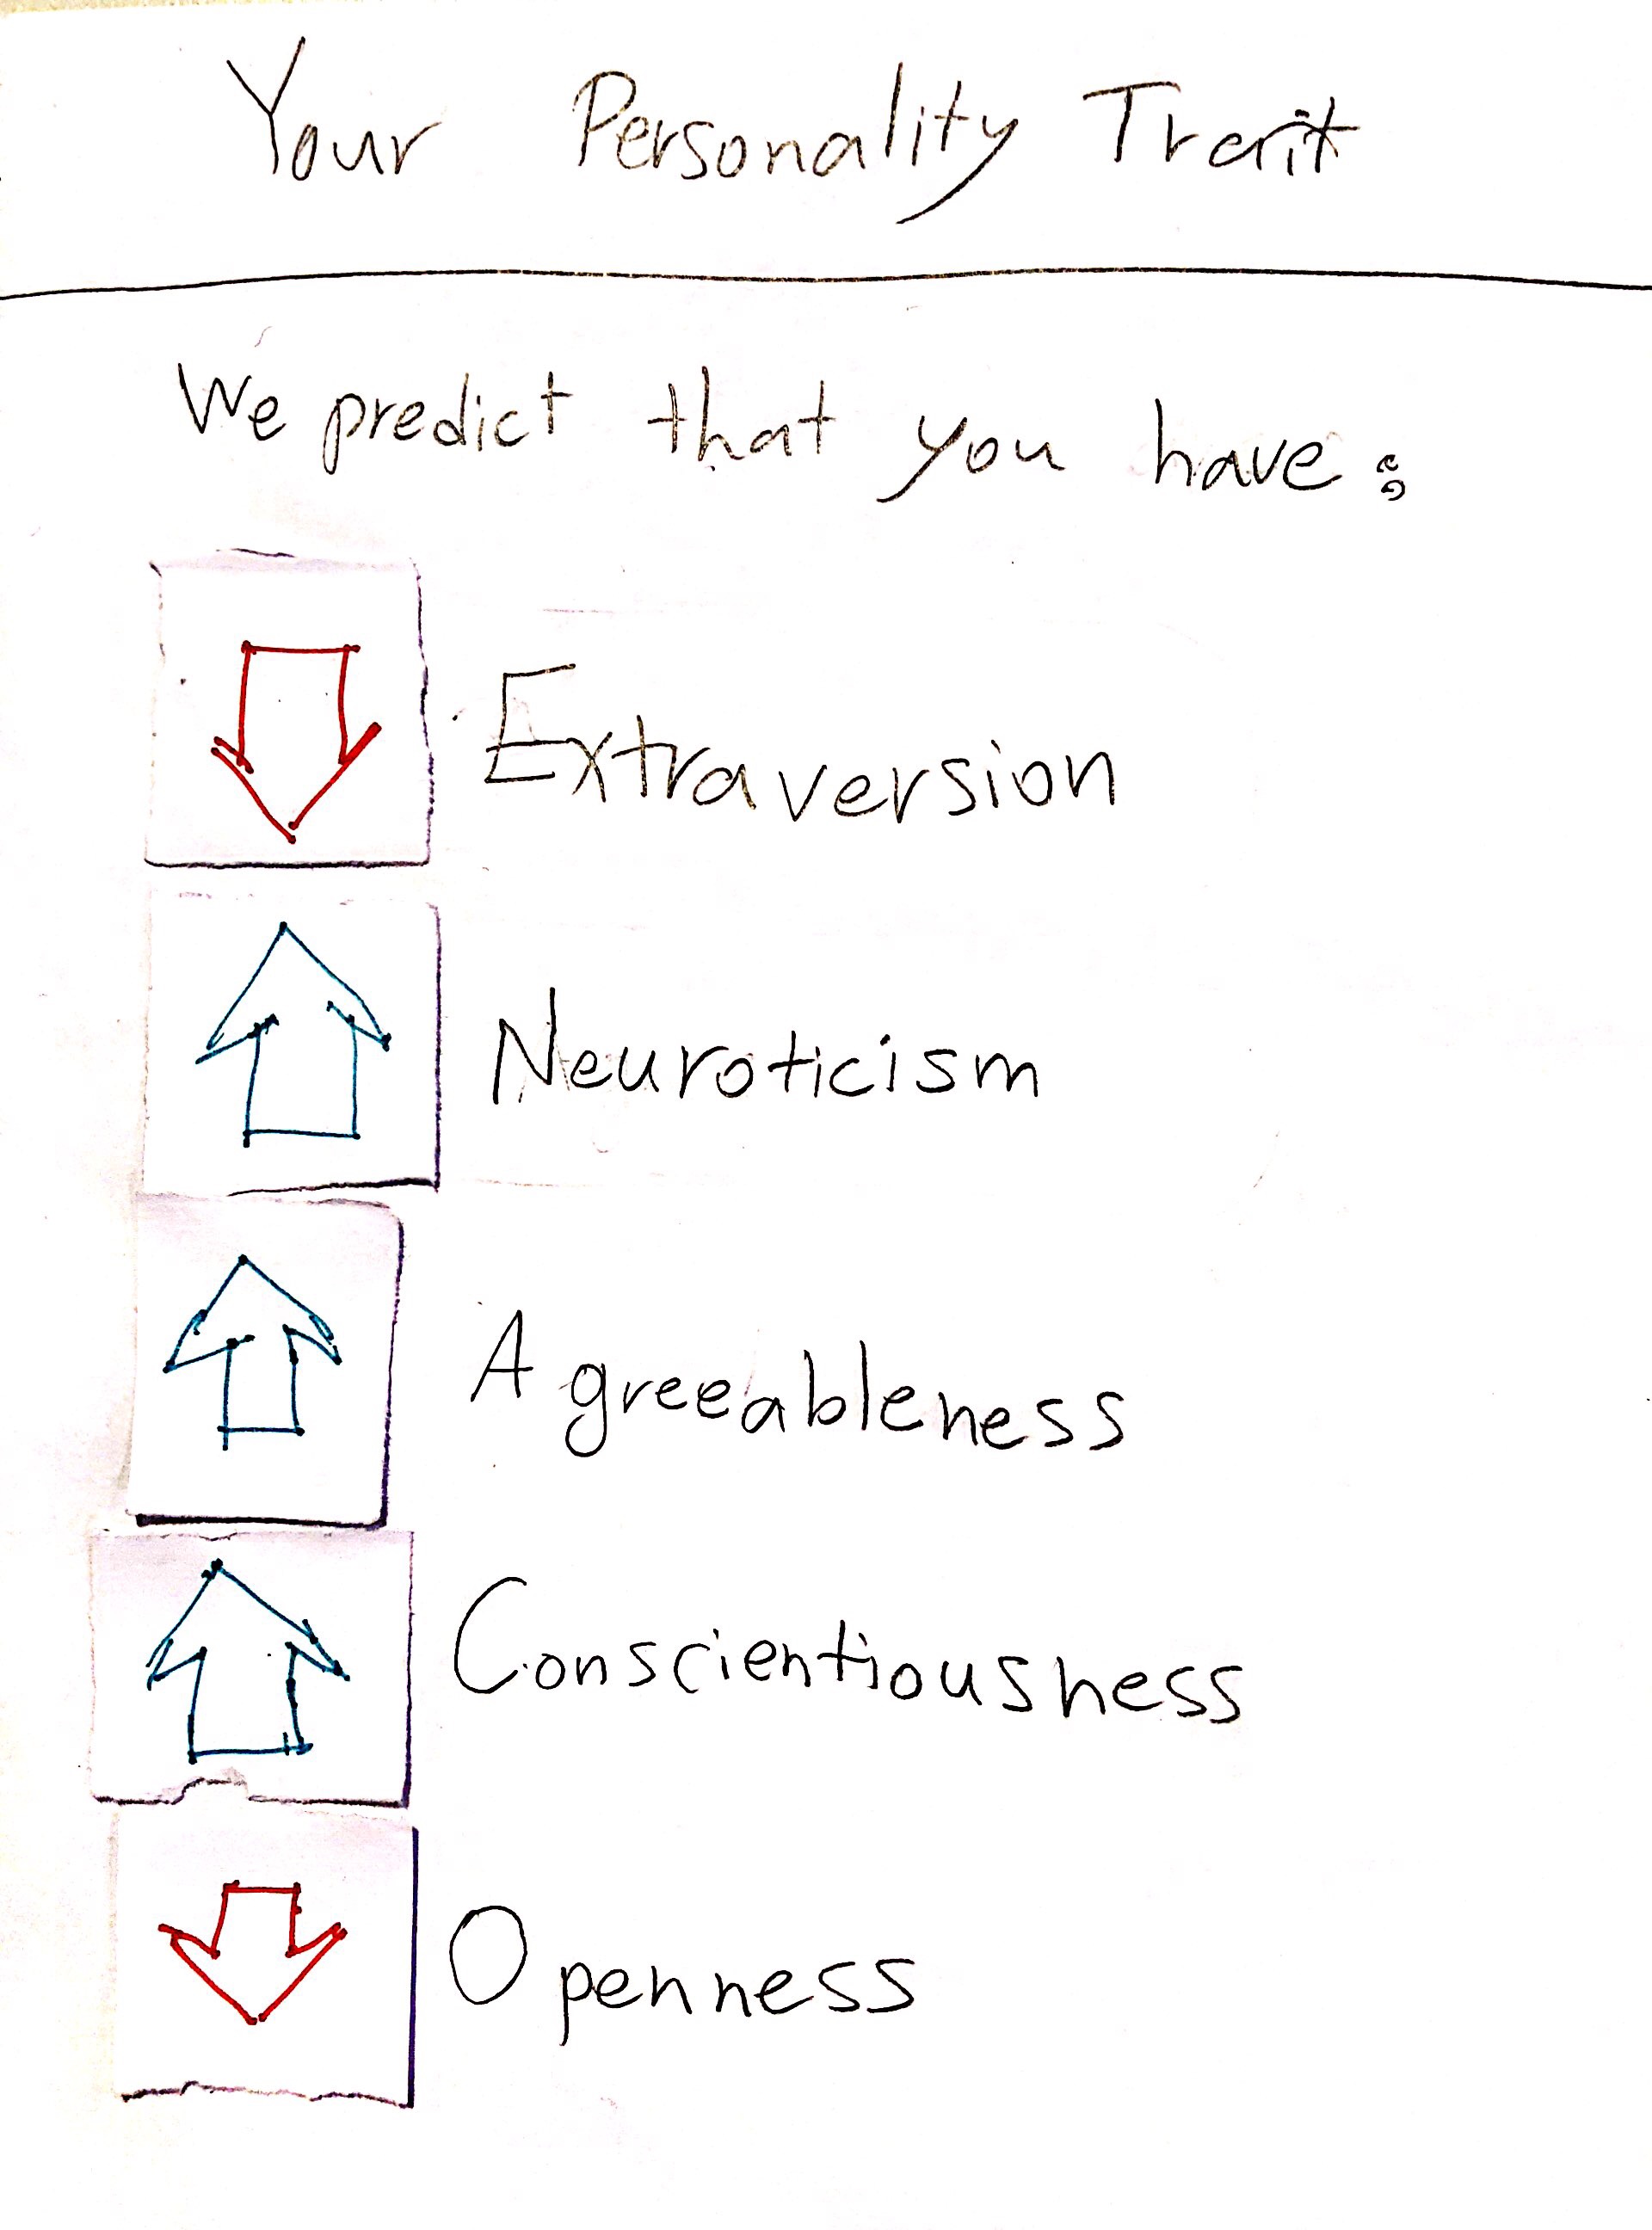 Your Personality Trait
We predict that you have:
Extraversion
Neuroticism
Agreeableness
Conscientiousness
Openness